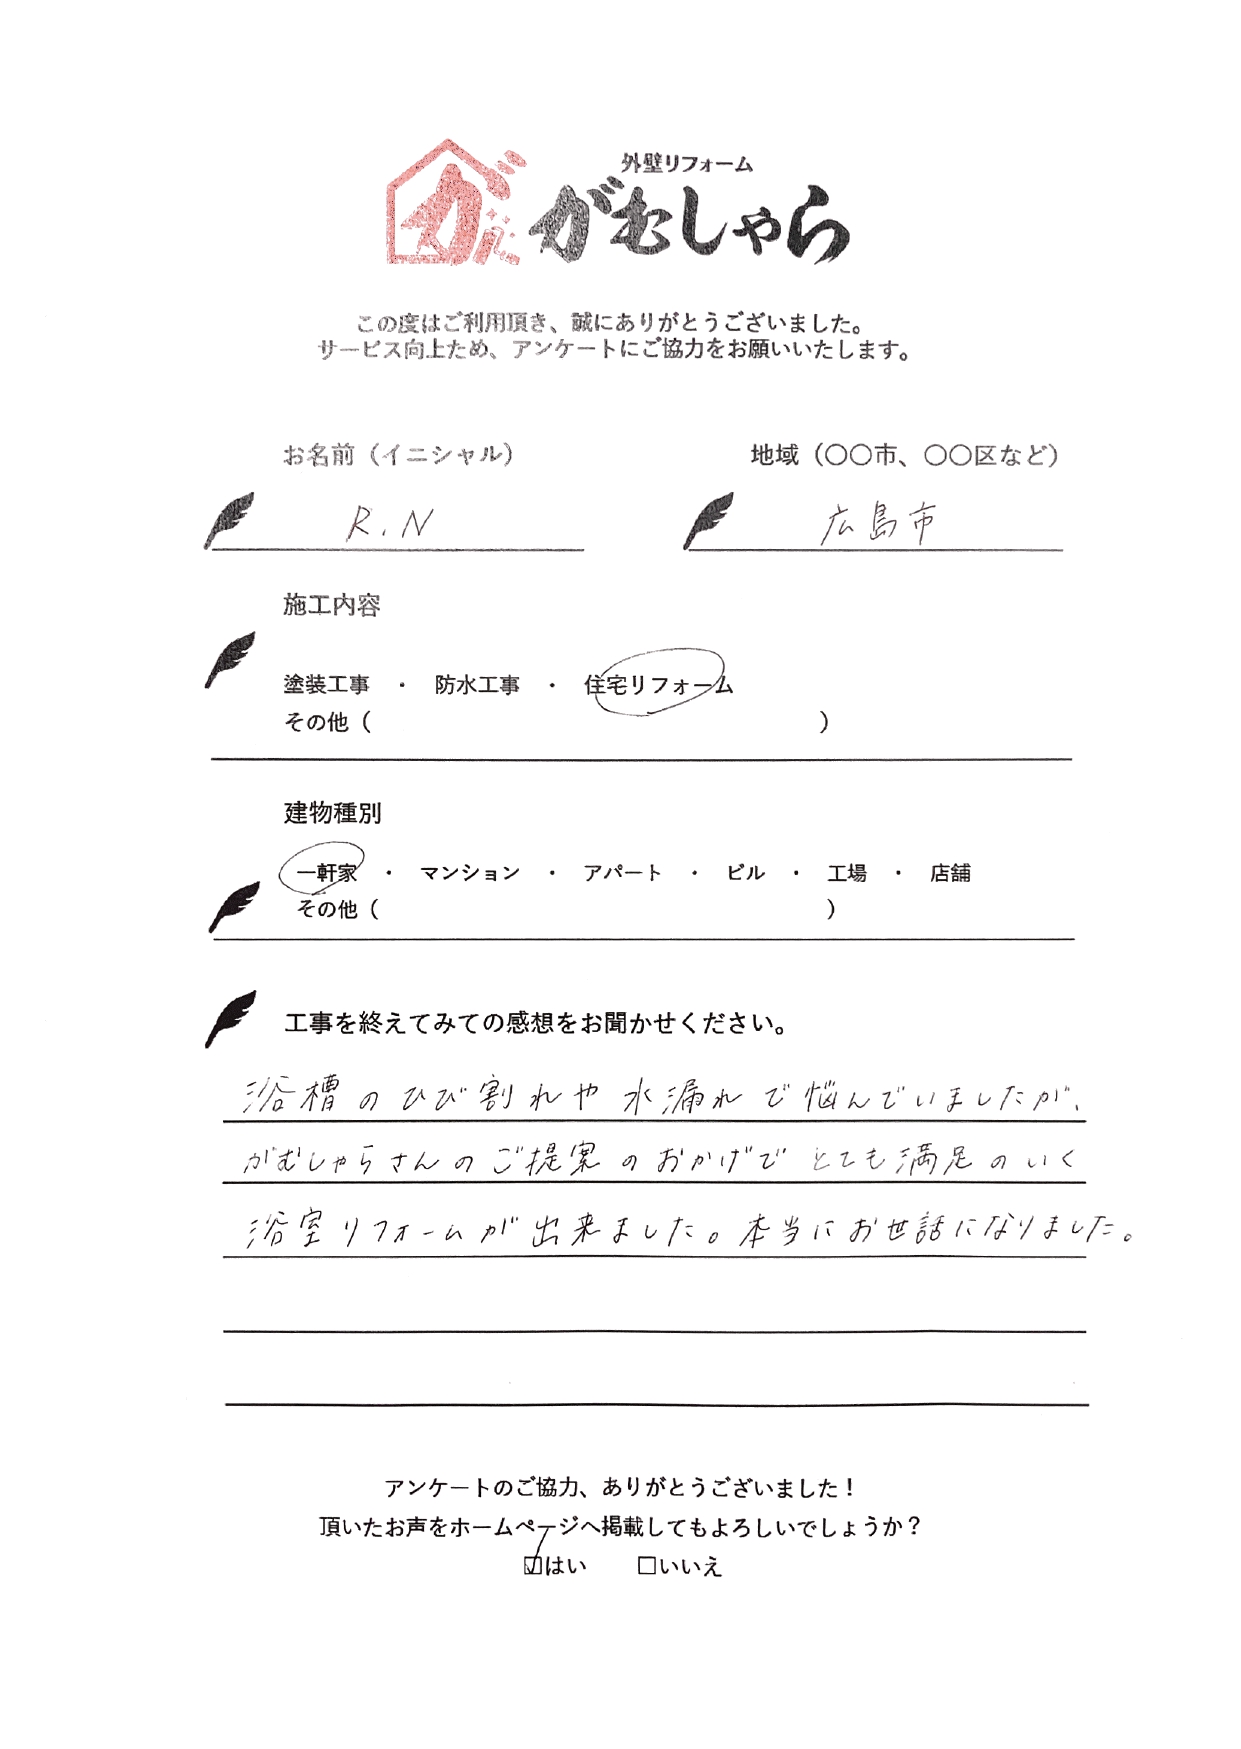 外壁リフォーム
がむしゃら
この度はご利用頂き、誠にありがとうございました。
サービス向上ため、アンケートにご協力をお願いいたします。
お名前（イニシャル） 地域（〇〇市、〇〇区など）
R.N 広島市
施工内容
塗装工事 ・ 防水工事 ・ 住宅リフォーム
その他（ ）
建物種別
一軒家 ・ マンション ・ アパート ・ ビル ・ 工場 ・ 店舗
その他（ ）
工事を終えてみての感想をお聞かせください。
浴槽のひび割れや水漏れで悩んでいましたが、
がむしゃらさんのご提案のおかげでとても満足のいく
浴室リフォームが出来ました。本当にお世話になりました。
アンケートのご協力、ありがとうございました！
頂いたお声をホームページへ掲載してもよろしいでしょうか？
☑はい □いいえ